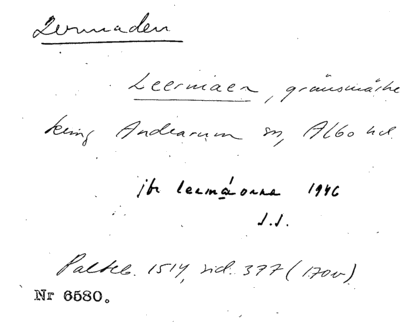 Lermaden
Leermaen, gränsmärke
kring Andrarum sn, Albo hd.
jfr leermáorna 1946
S.S.
Palteb. 1514, sid. 377 (170v).
Nr 6580.